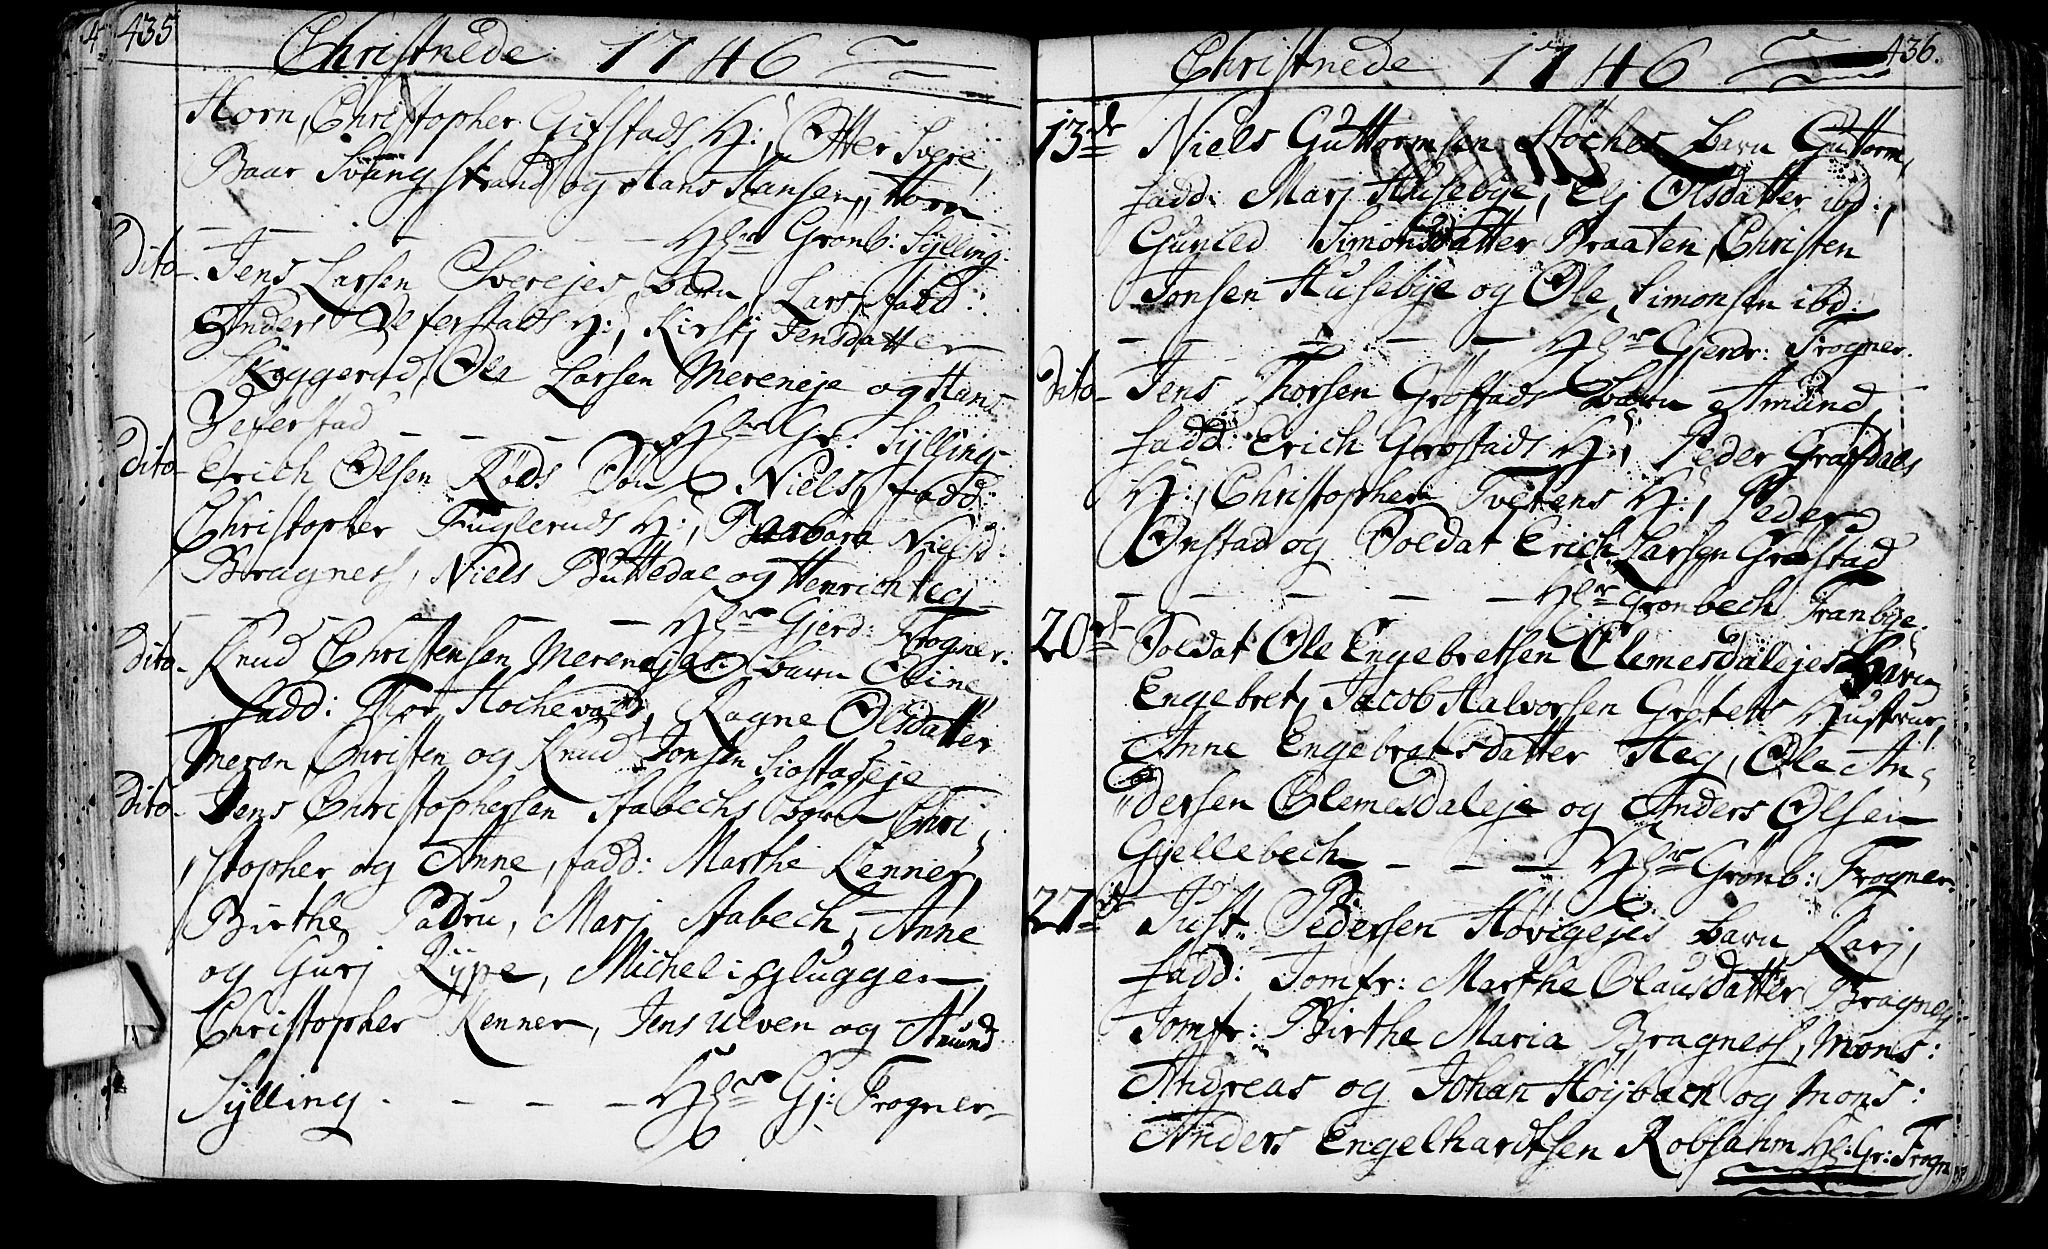 435
Christnede 1746
Horn, Christopher Gifstads H:, Otter Svere,
Baar Svangstrand og Hans Hansen, Horn
Hr Gronb: Sylling.
Dito Jens Larsen Sverejes barn Lars, fadd:
Anders Veferstads H:, Kirsti Jensdatter
Skyggerud, Ole Larsen Mereneje og Hans
Veferstad Hr Gr: Sylling.
Dito Erich Olsen Röds Niels, fadd:
Christopher Fugleruds H:, Barbara Nielsd:
Bragness, Niels Buttedal og Henrich Heg
Hr Gjerd: Frogner.
Dito Knud Christensen Merenejes barn Eline
fadd: Hochevold, Ragne Olsdatter
Meren, Christen og Knud Jonsen Siostadeje
Dito Jens Christophersen Stabechs barn Chri
stopher og Anne, fadd: Marthe Kenner,
Birthe Padru, Marj Stabech, Anne
og Gurj Rype, Michel Gluggen,
Christopher Kenner, Jens Ulven og Amund
Sylling. Hr Gj: Frogner
436.
Christnede 1746
13de Niels Guttormsen Stöches barn Guttorm,
fadd: Marj Husebye, Elj Olsdatter ibd:,
Gunild Simonsdatter Braaten, Christen
Jonsen Husebye og Ole Simonsen ibd:
Hr Gjerdr: Frogner.
Dito Jens Thorsen Grostads barn Amund
fadd: Erich Grostads H:, Peder Grafdals
H:, Christopher Tvetens H:, Peder
Onstad og Soldat Erich Larsen Grostad
Hr Gronbech Tranbye.
20de Soldat Ole Engebretsen Clemesdalejes barn
Engebret, Jacob Halvorsen Hustrue,
Anne Engebretsdatter Heg, Ole An
dersen Clemesdaleje og Anders Olsen
Gjellebech Hr Gronb: Frogner.
27de Just Pedersen Hörigejes barn Karj,
fadd: Jomfr: Marthe Clausdatter Bragness
Jomfr: Birthe Maria Bragness, Mons:
Andreas og Johan Höijbach og Mons:
Anders Engelhardtsen Robsahm Hr: Gr: Frogn